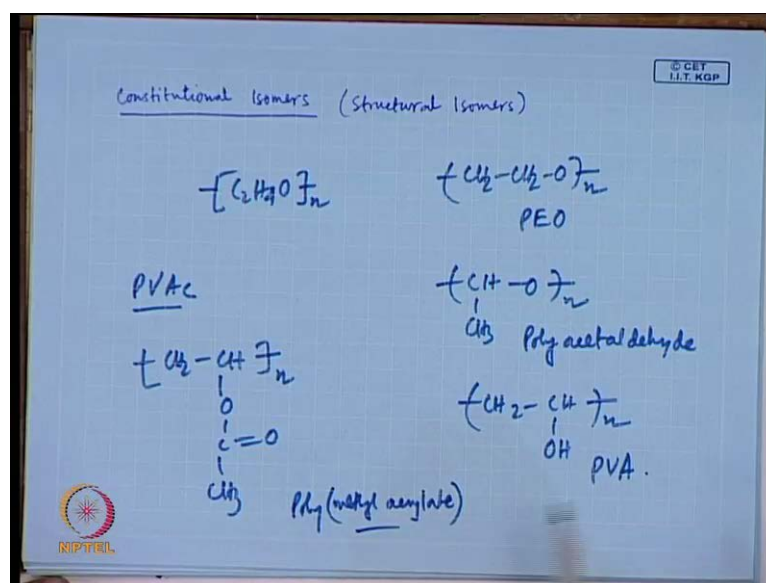 © CET
I.I.T. KGP
Constitutional Isomers (Structural Isomers)
-[C2H4O]-n
-(CH2-CH2-O)-n
PEO
PVAc
-(CH-O)-n
CH3
Poly acetaldehyde
-[CH2-CH]-n
O
C=O
CH3
-(CH2-CH)-n
OH
PVA.
Poly(methyl acrylate)
NPTEL